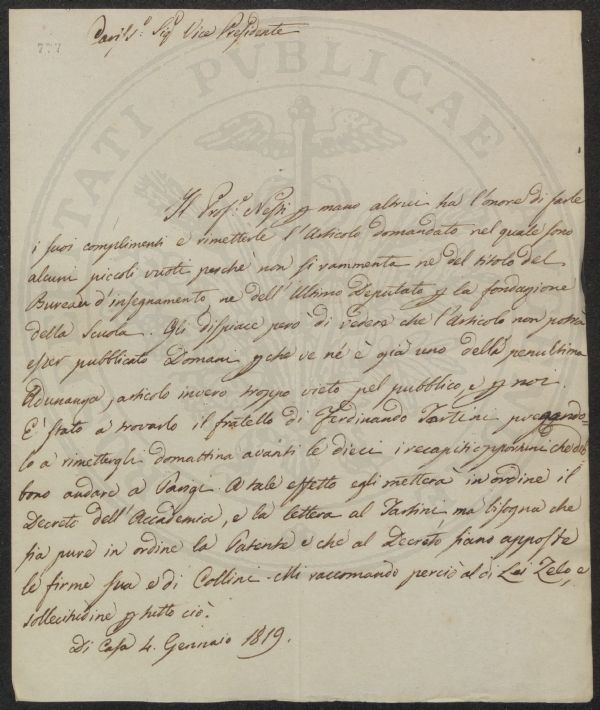 777
Caris.º Sig.r Vice Presidente
Il Prof.r Nespi p mano altrui ha l'onore di farle
i suoi complimenti e rimetterle l'Articolo domandato nel quale sono
alcuni piccoli vuoti perchè non si rammenta nè del titolo del
Bureau d'insegnamento, ne dell'Ultimo Deputato p la fondazione
della Scuola. Gli dispiace però di vedere che l'Articolo non potria
esser pubblicato Domani p che ve né è già uno della penultima
Adunanza, articolo invero troppo vieto pel pubblico, e p noi.
E' stato a trovarlo il fratello di Ferdinando Tartini pregando=
lo a rimettergli domattina avanti le dieci i recapiti opportuni che deb
bono andare a Parigi. A tale effetto egli metterà in ordine il
Decreto dell'Accademia, e la lettera al Tartini ma bisogna che
sia pure in ordine la Patente e che al Decreto siano apposte
le firme sua e di Collini. Mi raccomando perciò al di Lei Zelo, e
sollecitudine p tutto ciò.
Di Casa 4. Gennaio 1819.